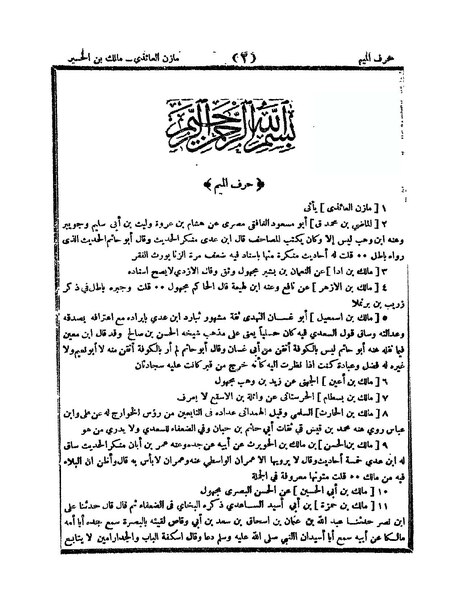 حرف الميم (٣) مازن العائذى ــ مالك بن الحسير
بسم الله الرحمن الرحيم
﴿ حرف الميم ﴾
١ [ مازن العائذى ] يأتى
٢ [ الماضى بن محمد ق ] أبو مسعود الغافقى مصرى عن هشام بن عروة وليث بن أبى سليم وجويبر
وعنه ابن وهب ليس إلا وكان يكتب المصاحف قال ابن عدى منكر الحديث وقال أبو حاتم الحديث الذى
رواه باطل ٥٥ قلت له أحاديث منكرة منها باسناد فيه ضعف مرة الزنا يورث الفقر
٣ [ مالك بن ادا ] عن النعمان بن بشير مجهول وثق وقال الازدى لا يصح اسناده
٤ [ مالك بن الازهر ] عن نافع وعنه ابن لهيعة قال الحاكم مجهول ٥٥ قلت وجبره باطل فى ذكر
زريب بن برثملا
٥ [ مالك بن اسمعيل ] أبو غسان النهدى ثقة مشهور ثبارد ابن عدى بايراده مع اعترافه بصدقه
وعدالته وساق قول السعدى فيه كان حسنياً يعنى على مذهب شيخه الحسن بن صالح وقد قال ابن معين
فيما نقله عنه أبو حاتم ليس بالكوفة أتقن من أبى غسان وقال أبو حاتم لم أر بالكوفة أتقن منه لا أبو نعيم ولا
غيره له فضل وعبادة كنت اذا نظرت اليه كأنه خرج من قبر كانت عليه سجادتان
٦ [ مالك بن أعين ] الجهنى عن زيد بن وهب مجهول
٧ [ مالك بن بسطام ] الخرستانى عن واثلة بن الاسقع لا يعرف
٨ [ مالك بن الحارث ] السلمى وقيل الهمدانى عداده فى التابعين من رؤس الخوارج له عن على وابن
عباس روى عنه محمد بن قيس فى ثقات أبى حاتم بن حبان وفى الضعفاء للسعدى ولا يدرى من هو
٩ [ مالك بن الحسن ] بن مالك بن الحويرث عن أبيه عن جده وعنه عمر بن أبان منكر الحديث ساق
له ابن عدى خمسة أحاديث وقال لا يرويها الا عمران الواسطى عنه وعمران لا بأس به قال وأظن ان البلاء
فيه من مالك ٥٥ قلت متونها معروفة فى الجملة
١٠ [ مالك بن أبى الحسين ] عن الحسن البصرى مجهول
١١ [ مالك بن حمزة ] بن أبى أسيد الساعدى ذكره البخاى فى الضعفاء ثم قال قال حدثنا على
ابن نصر حدثنا عبد الله بن عثمان بن اسحاق بن سعد بن أبى وقاص لقيته بالبصرة سمع جده أبا أمه
مالكا عن أبيه سمع أبا أسيدان النبى صلى الله عليه وسلم دعا وقال اسكفة الباب والجدار امين لا يتابع